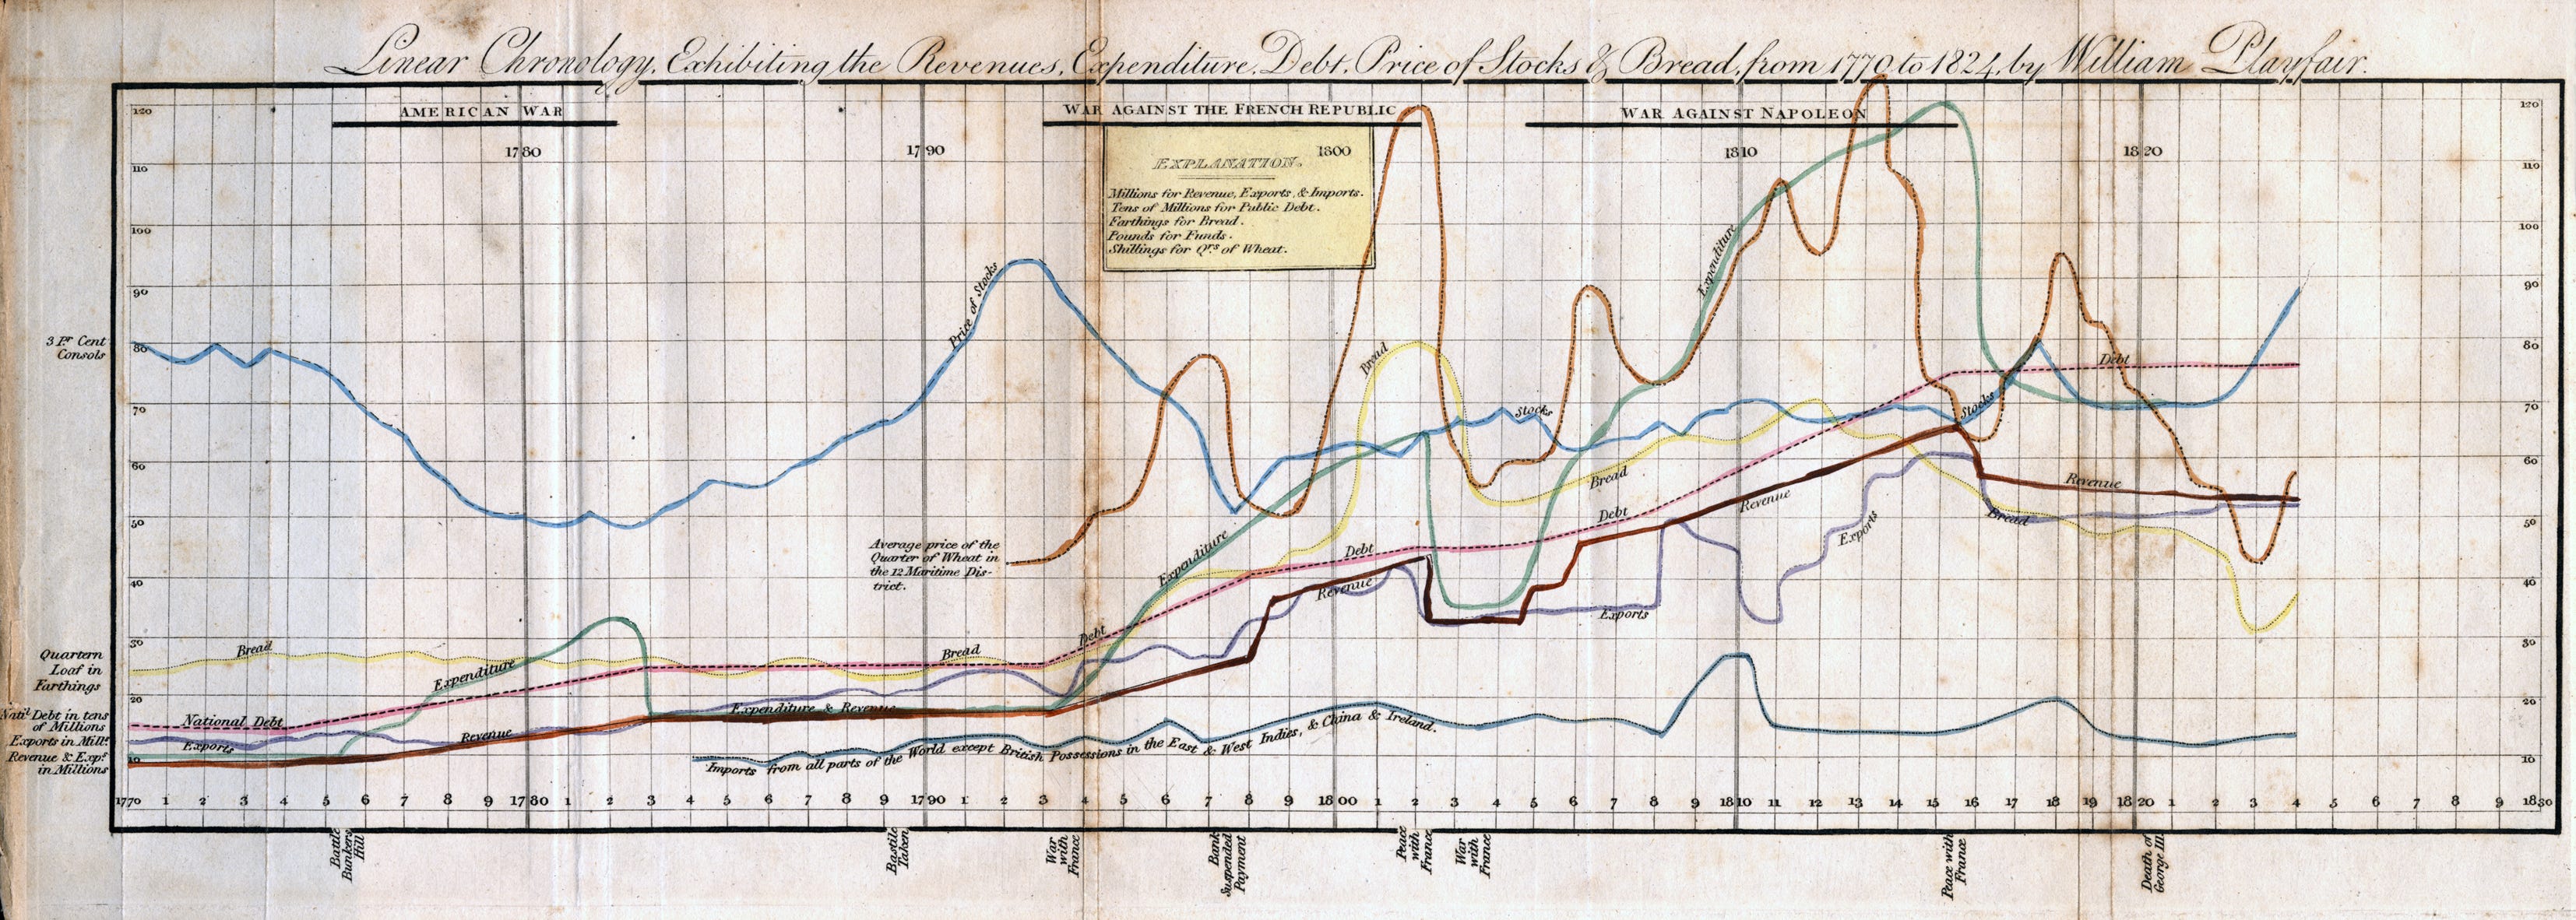 Linear Chronology, Exhibiting the Revenues, Expenditure, Debt, Price of Stocks & Bread, from 1770 to 1824, by William Playfair.
AMERICAN WAR
WAR AGAINST THE FRENCH REPUBLIC
WAR AGAINST NAPOLEON
1780
1790
1800
1810
1820
EXPLANATION.
Millions for Revenue, Exports, & Imports.
Tens of Millions for Public Debt.
Farthings for Bread.
Pounds for Funds.
Shillings for Qrs of Wheat.
120
110
100
90
80
70
60
50
40
30
20
10
120
110
100
90
80
70
60
50
40
30
20
10
3 Pr Cent
Consols
Quartern
Loaf in
Farthings
Natil Debt in tens
of Millions
Exports in Mills
Revenue & Expe
in Millions
Price of Stocks
Average price of the
Quarter of Wheat in
the 12 Maritime Dis-
trict.
Bread
Expenditure
National Debt
Exports
Revenue
Expenditure & Revenue
Bread
Debt
Imports from all parts of the World except British Possessions in the East & West Indies, & China & Ireland.
Expenditure
Bread
Debt
Revenue
Stocks
Bread
Debt
Exports
Expenditure
Revenue
Exports
Stocks
Debt
Revenue
Bread
1770 1 2 3 4 5 6 7 8 9 1780 1 2 3 4 5 6 7 8 9 1790 1 2 3 4 5 6 7 8 9 1800 1 2 3 4 5 6 7 8 9 1810 11 12 13 14 15 16 17 18 19 1820 1 2 3 4 5 6 7 8 9 1830
Battle
Bunkers
Hill
Bastile
Taken
War
with
France
Bank
Suspended
Payment
Peace
with
France
War
with
France
Peace with
France
Death of
George III